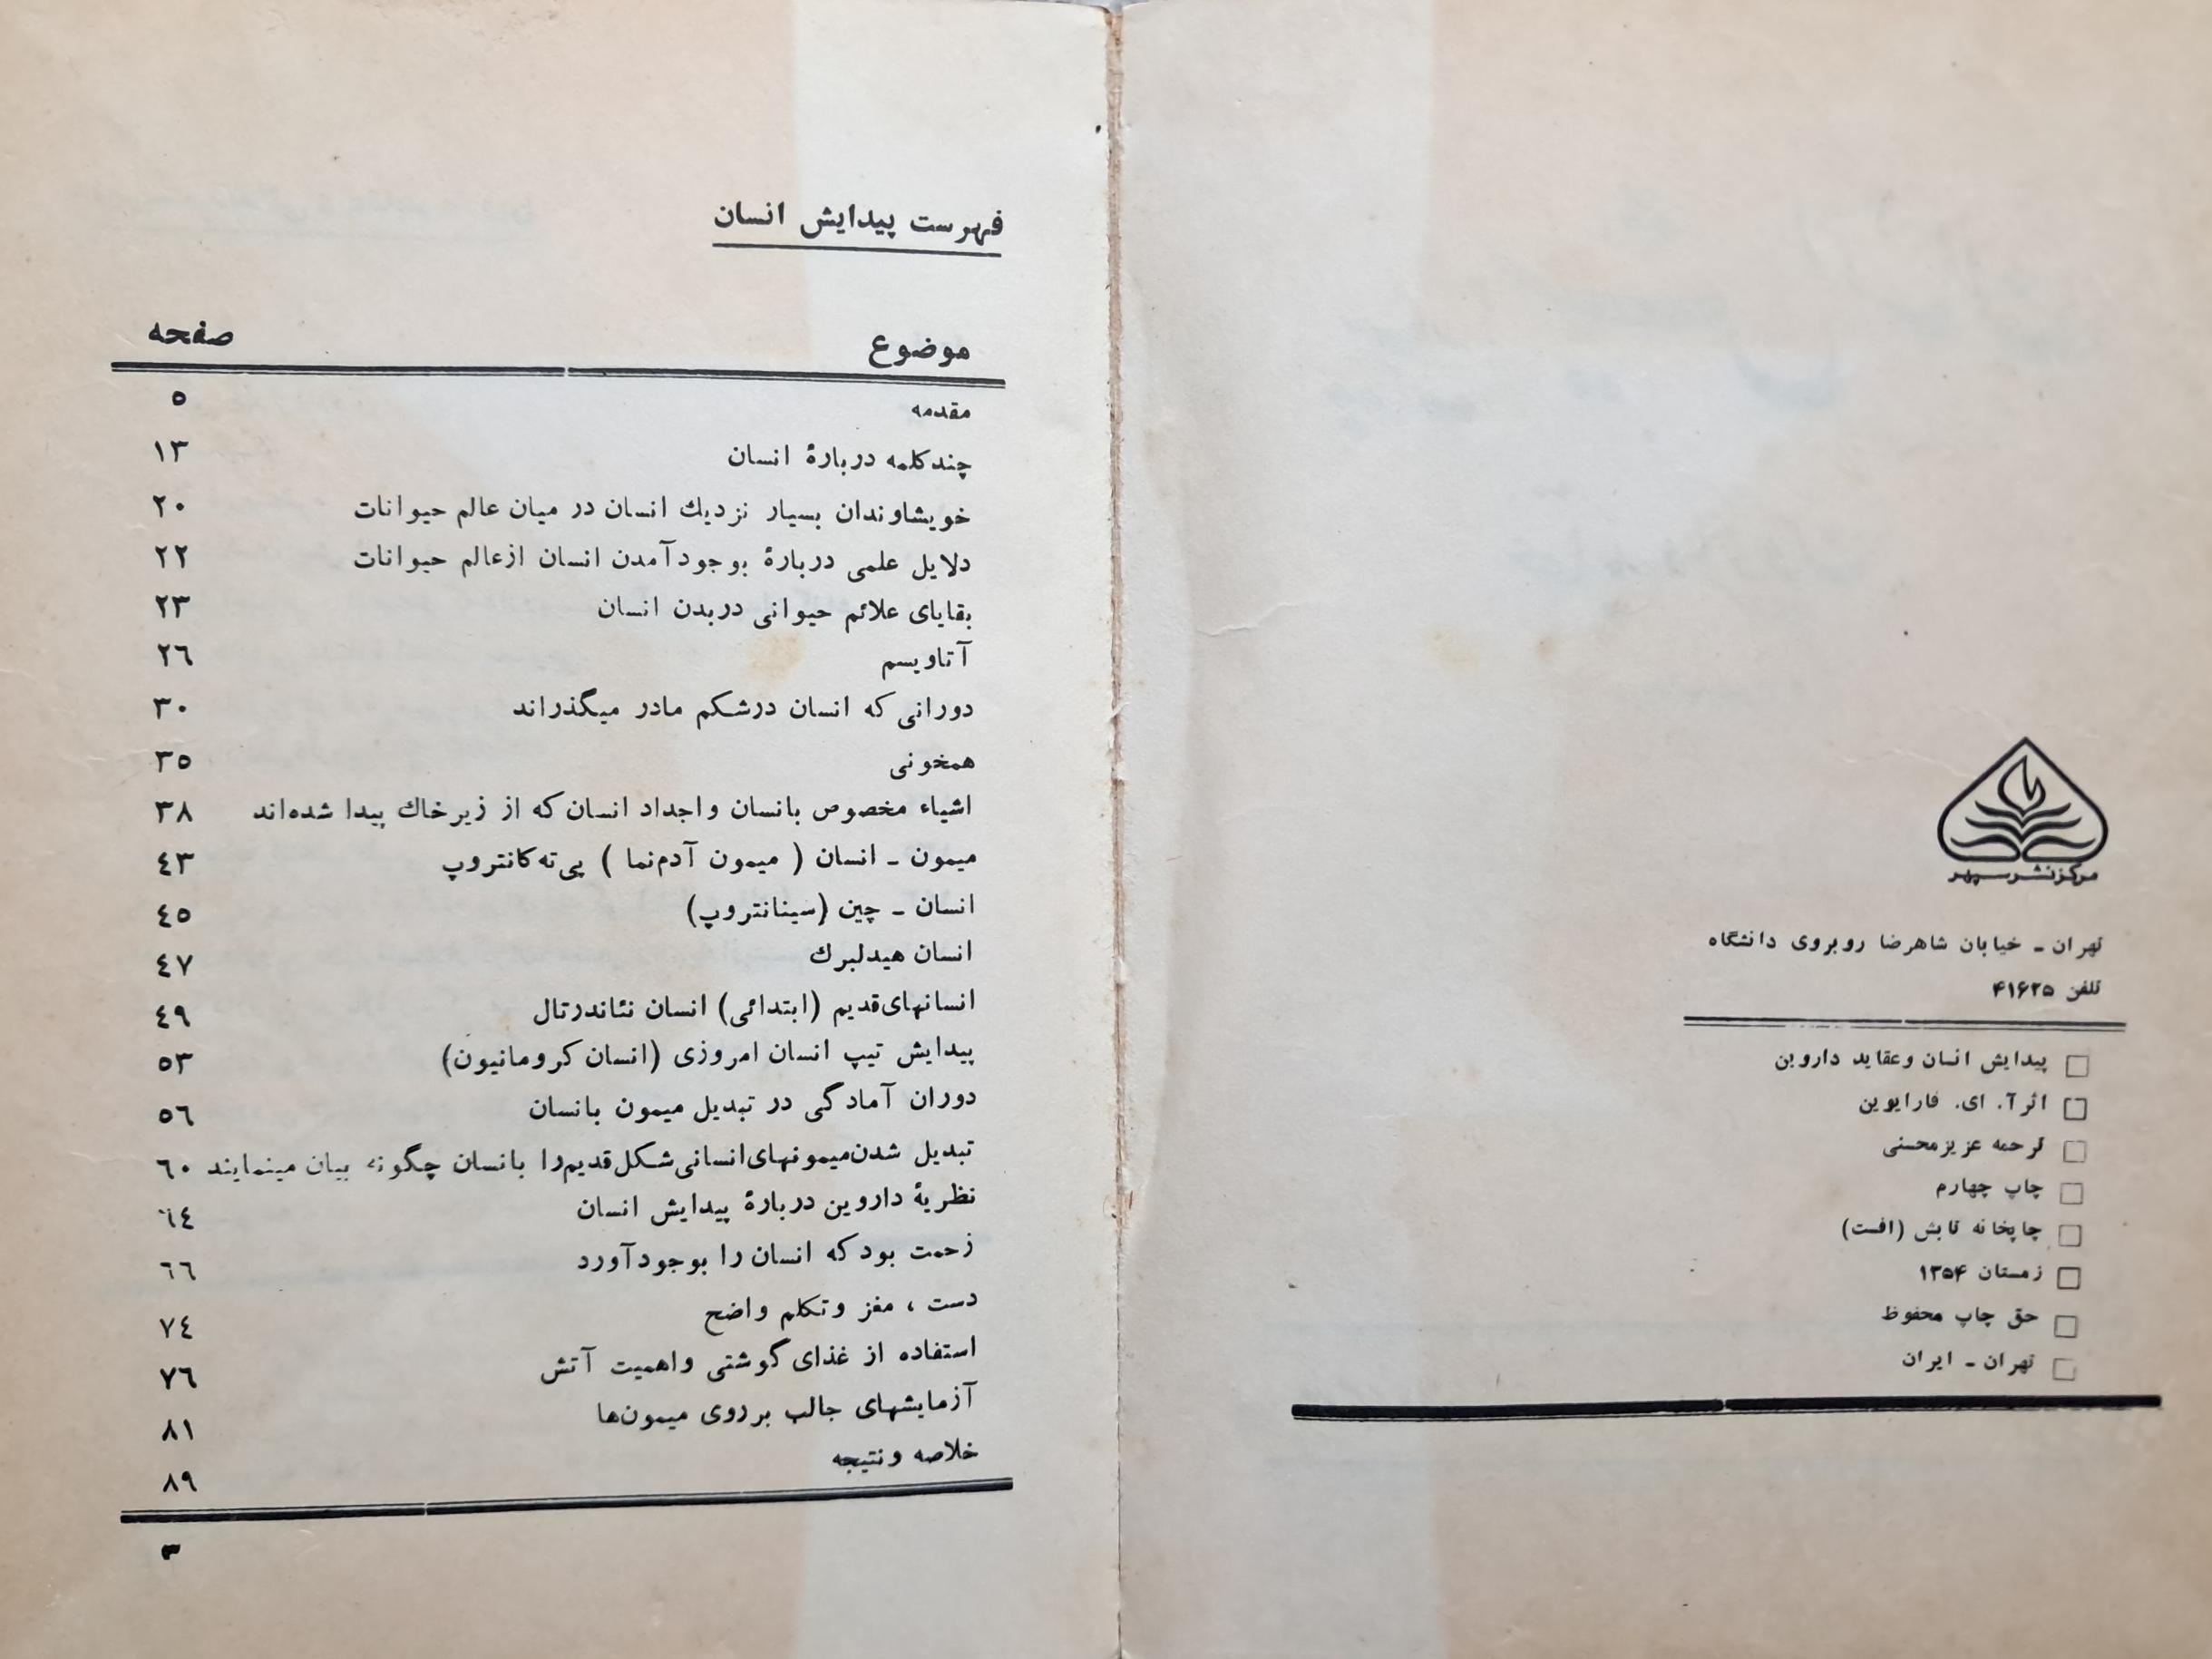 مرکز نشر سپهر
تهران - خیابان شاهرضا روبروی دانشگاه
تلفن ۴۱۶۲۵
پیدایش انسان وعقاید داروین
اثر آ. ای. فارایوین
ترجمه عزیز محسنی
چاپ چهارم
چاپخانه تابش (افست)
زمستان ۱۳۵۴
حق چاپ محفوظ
تهران - ایران
فهرست پیدایش انسان
موضوع صفحه
مقدمه ٥
چند کلمه دربارهٔ انسان ١٣
خویشاوندان بسیار نزدیك انسان در میان عالم حیوانات ٢٠
دلایل علمی دربارهٔ بوجود آمدن انسان از عالم حیوانات ٢٢
بقایای علائم حیوانی در بدن انسان ٢٣
آتاویسم ٢٦
دورانی که انسان در شکم مادر میگذراند ٣٠
همخونی ٣٥
اشیاء مخصوص بانسان و اجداد انسان که از زیر خاك پیدا شده‌اند ٣٨
میمون - انسان ( میمون آدم‌نما ) پی‌ته‌کانتروپ ٤٣
انسان - چین (سینانتروپ) ٤٥
انسان هیدلبرك ٤٧
انسانهای قدیم (ابتدائی) انسان نئاندرتال ٤٩
پیدایش تیپ انسان امروزی (انسان کرومانیون) ٥٣
دوران آمادگی در تبدیل میمون بانسان ٥٦
تبدیل شدن میمونهای انسانی شکل قدیم را بانسان چگونه بیان مینمایند ٦٠
نظریهٔ داروین دربارهٔ پیدایش انسان ٦٤
زحمت بود که انسان را بوجود آورد ٦٦
دست ، مغز و تکلم واضح ٧٤
استفاده از غذای گوشتی و اهمیت آتش ٧٦
آزمایشهای جالب بر روی میمون‌ها ٨١
خلاصه و نتیجه ٨٩
٣